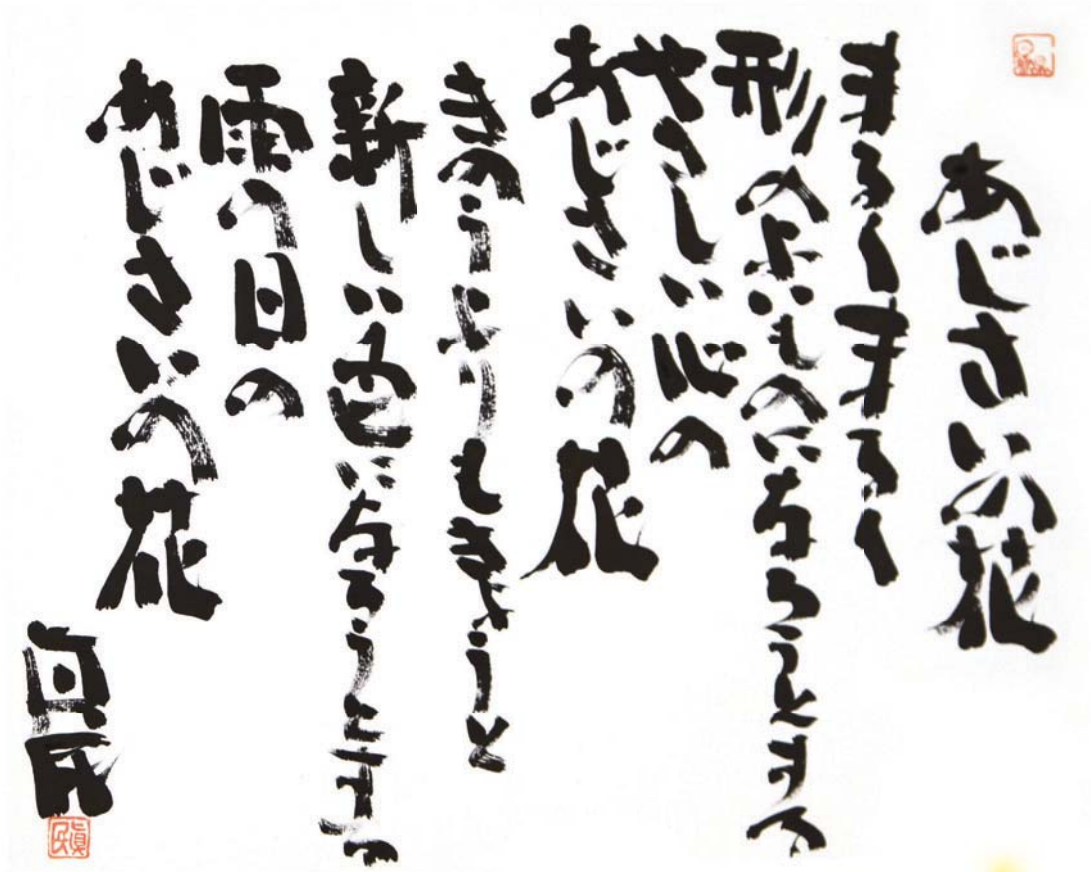 あじさいの花
まるくまるく
形のよいものになろうとする
やさしい心の
あじさいの花
きのうよりもきょうと
新しい色になろうとする
雨の日の
あじさいの花
真民
眞民